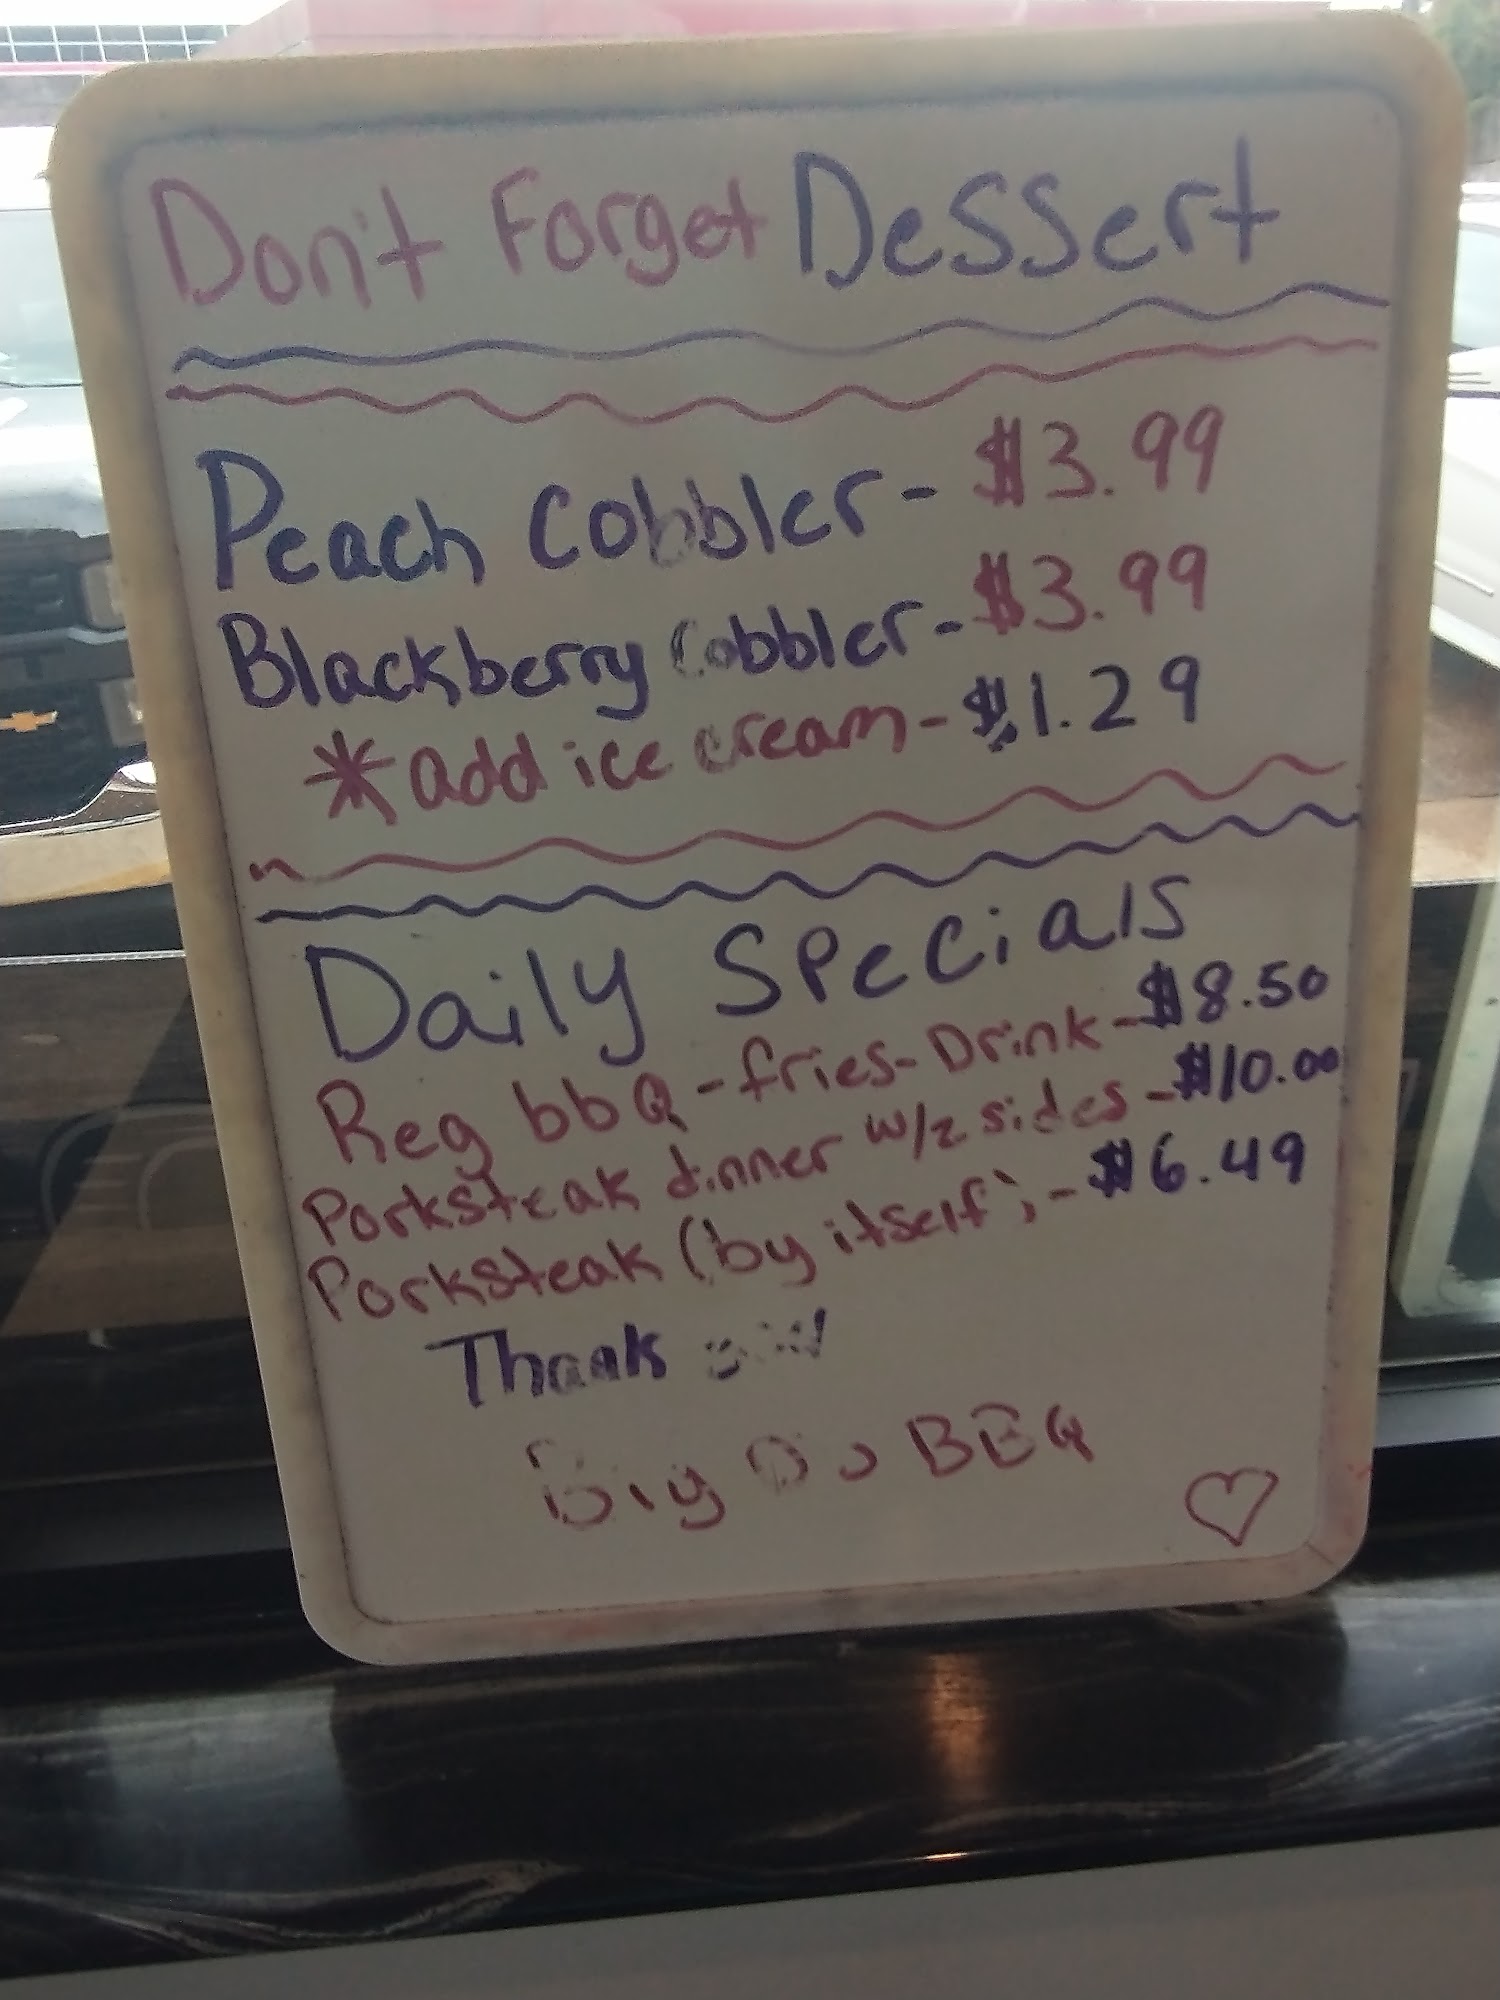 Don't Forget Dessert
Peach Cobbler - $3.99
Blackberry Cobbler - $3.99
* add ice cream - $1.29
Daily Specials
Reg bbQ - fries - Drink - $8.50
Porksteak dinner w/2 sides - $10.00
Porksteak (by itself) - $6.49
Thank
Big BBQ